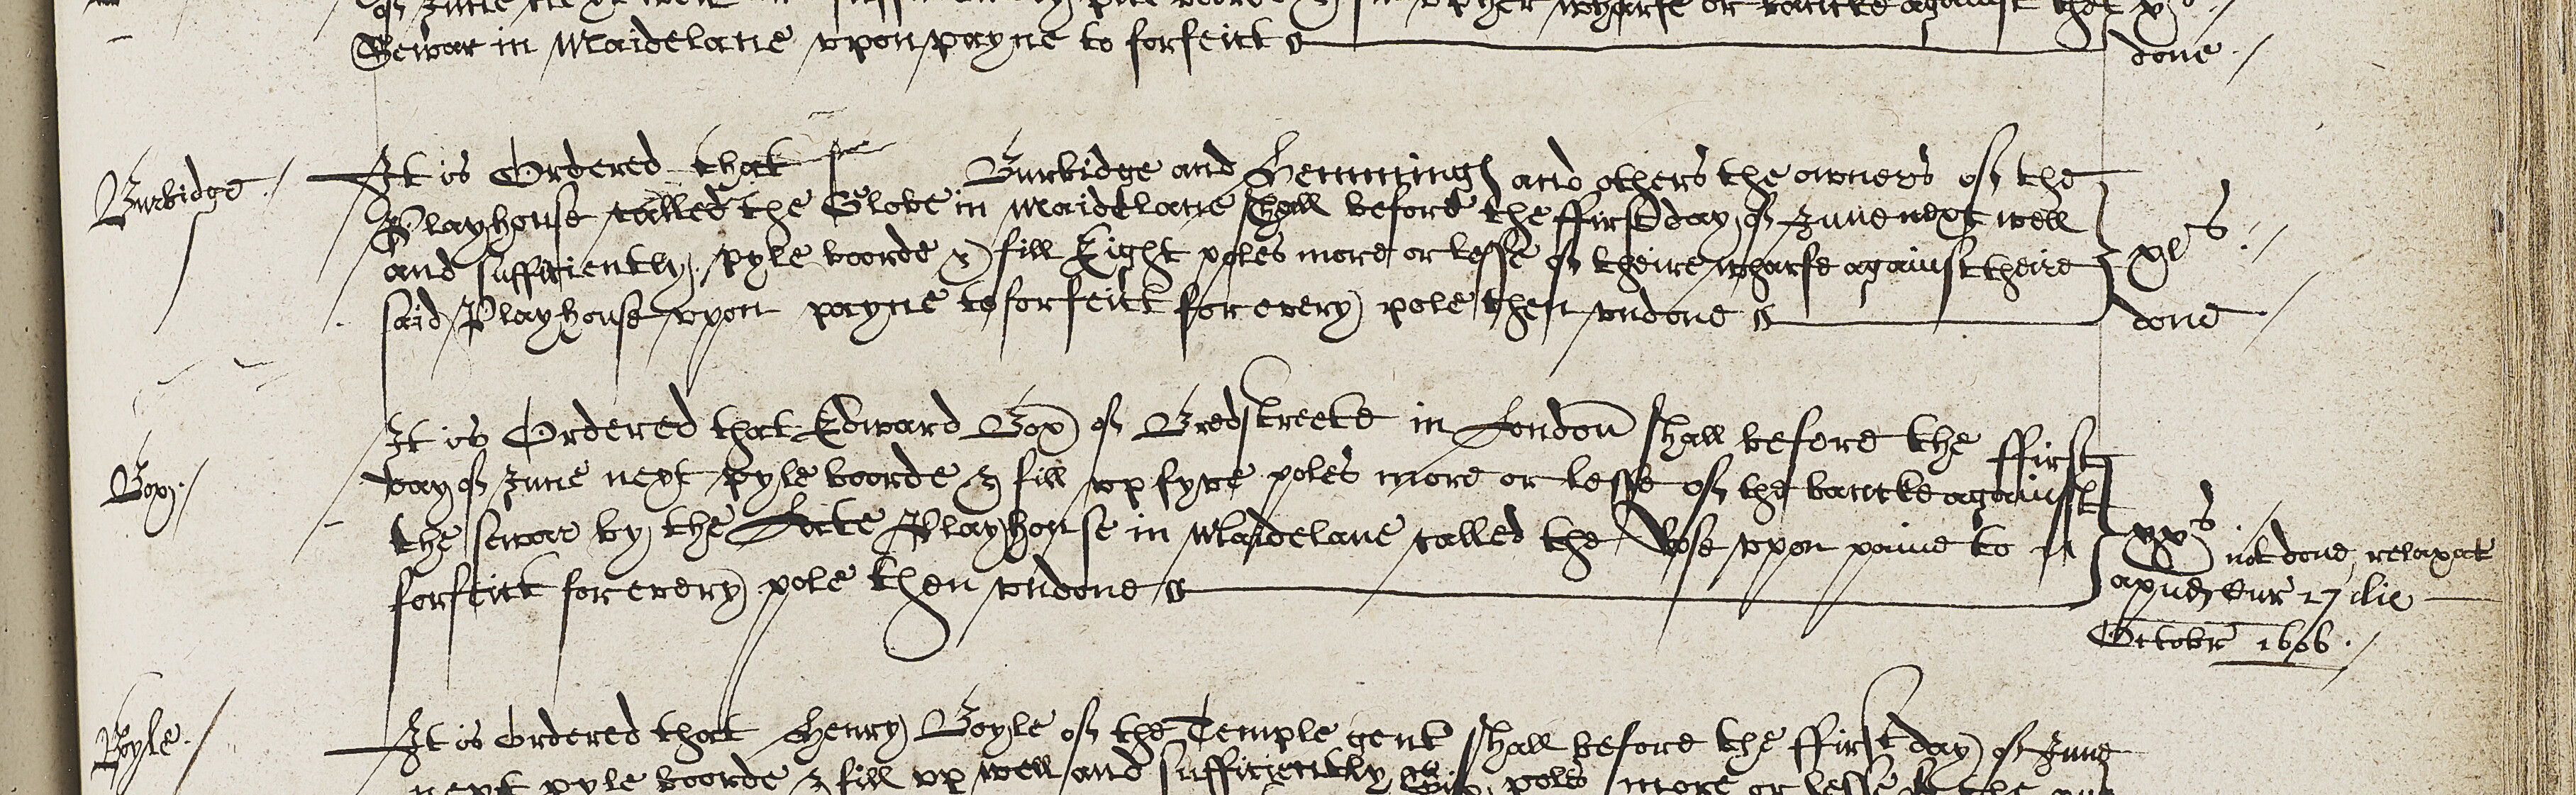 Sewar in Maidelane vpon payne to forfeict
done
Burbidge
It is Ordered that Burbidge and Hemmings and others the owners of the
Playhouse called the Globe in Maidelane shall before the ffirst day of June next well
and sufficiently pyle boorde & fill Eight poles more or lesse of theire wharfe against theire
said Playhouse vpon payne to forfeict for every pole then vndone
xl s
done
Box
It is Ordered that Edward Box of Bredstreete in London shall before the ffirst
day of June next pyle boorde & fill vp fyve poles more or lesse of the bancke against
the sewar by the Late Playhouse in Maidelane called the Rose vpon paine to
forfeict for every pole then vndone
xx s not done relaxat
apud Cur 27 die
Octobr 1606
Boyle
It is Ordered that Henry Boyle of the Temple gent shall before the ffirst day of June
next pyle boorde & fill vp well and sufficiently poles more or lesse